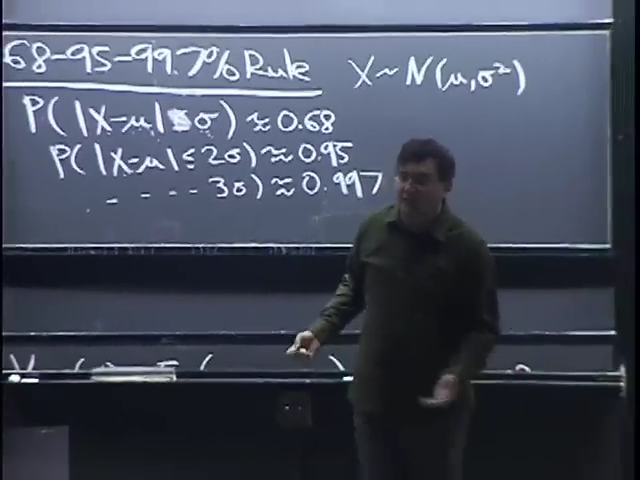 68-95-99.7% Rule X~N(μ,σ²)
P(|X-μ|≤σ)≈0.68
P(|X-μ|≤2σ)≈0.95
. - . - - 3σ)≈0.997